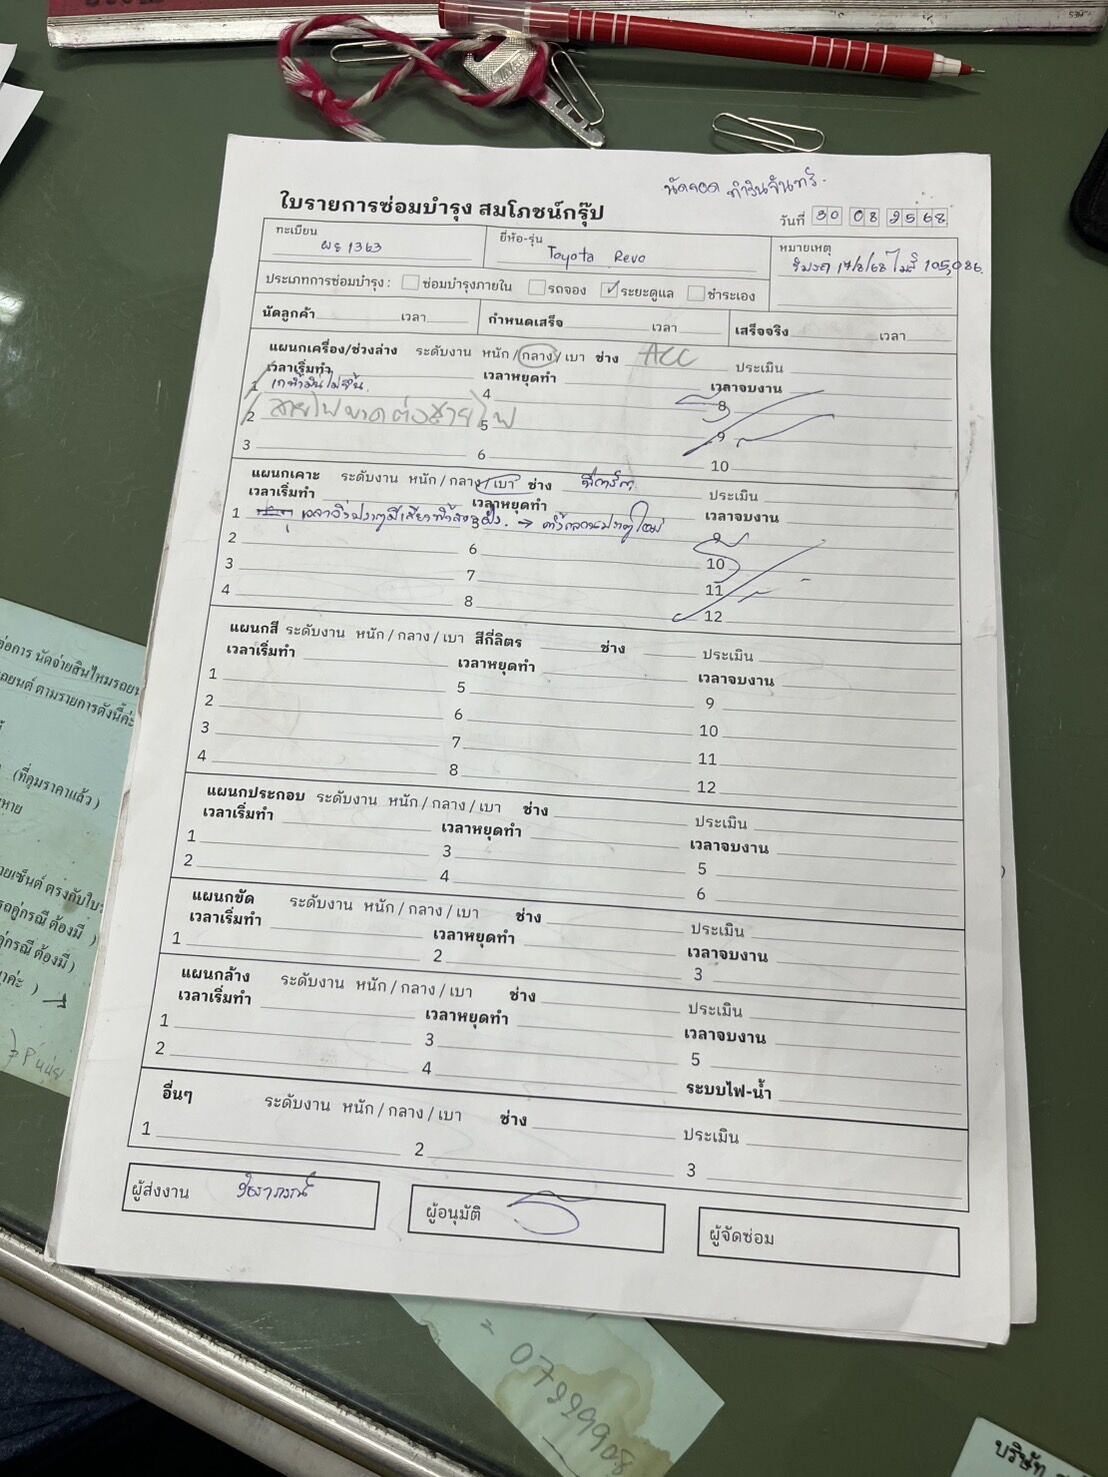 นัดจอด ทำวันจันทร์.
ใบรายการซ่อมบำรุง สมโภชน์กรุ๊ป
วันที่ 30 08 2568
ทะเบียน ผธ 1363
ยี่ห้อ-รุ่น Toyota Revo
หมายเหตุ
17/8/68 ไมล์ 105,086.
ประเภทการซ่อมบำรุง : ซ่อมบำรุงภายใน รถจอง ✓ ระยะดูแล ชำระเอง
นัดลูกค้า เวลา กำหนดเสร็จ เวลา เสร็จจริง เวลา
แผนกเครื่อง/ช่วงล่าง ระดับงาน หนัก / กลาง / เบา ช่าง ACC ประเมิน
เวลาเริ่มทำ เวลาหยุดทำ เวลาจบงาน
1 เกจ์น้ำมันไม่ขึ้น. 4 8
2 สายไฟขาดต่อสายไฟ 5 9
3 6 10
แผนกเคาะ ระดับงาน หนัก / กลาง / เบา ช่าง ประเมิน
เวลาเริ่มทำ เวลาหยุดทำ เวลาจบงาน
1 → 9
2 6 10
3 7 11
4 8 12
แผนกสี ระดับงาน หนัก / กลาง / เบา สีกี่ลิตร ช่าง ประเมิน
เวลาเริ่มทำ เวลาหยุดทำ เวลาจบงาน
1 5 9
2 6 10
3 7 11
4 8 12
แผนกประกอบ ระดับงาน หนัก / กลาง / เบา ช่าง ประเมิน
เวลาเริ่มทำ เวลาหยุดทำ เวลาจบงาน
1 3 5
2 4 6
แผนกขัด ระดับงาน หนัก / กลาง / เบา ช่าง ประเมิน
เวลาเริ่มทำ เวลาหยุดทำ เวลาจบงาน
1 2 3
แผนกล้าง ระดับงาน หนัก / กลาง / เบา ช่าง ประเมิน
เวลาเริ่มทำ เวลาหยุดทำ เวลาจบงาน
1 3 5
2 4 ระบบไฟ-น้ำ
อื่นๆ ระดับงาน หนัก / กลาง / เบา ช่าง ประเมิน
1 2 3
ผู้ส่งงาน
ผู้อนุมัติ
ผู้จัดซ่อม
ต่อการ นัดจ่ายสินไหมรถยน
รถยนต์ ตามรายการดังนี้ค่ะ
(ที่คุมราคาแล้ว)
ยหาย
ายเซ็นต์ ตรงกับใบ
รถคู่กรณี ต้องมี )
คู่กรณี ต้องมี )
บริษัท